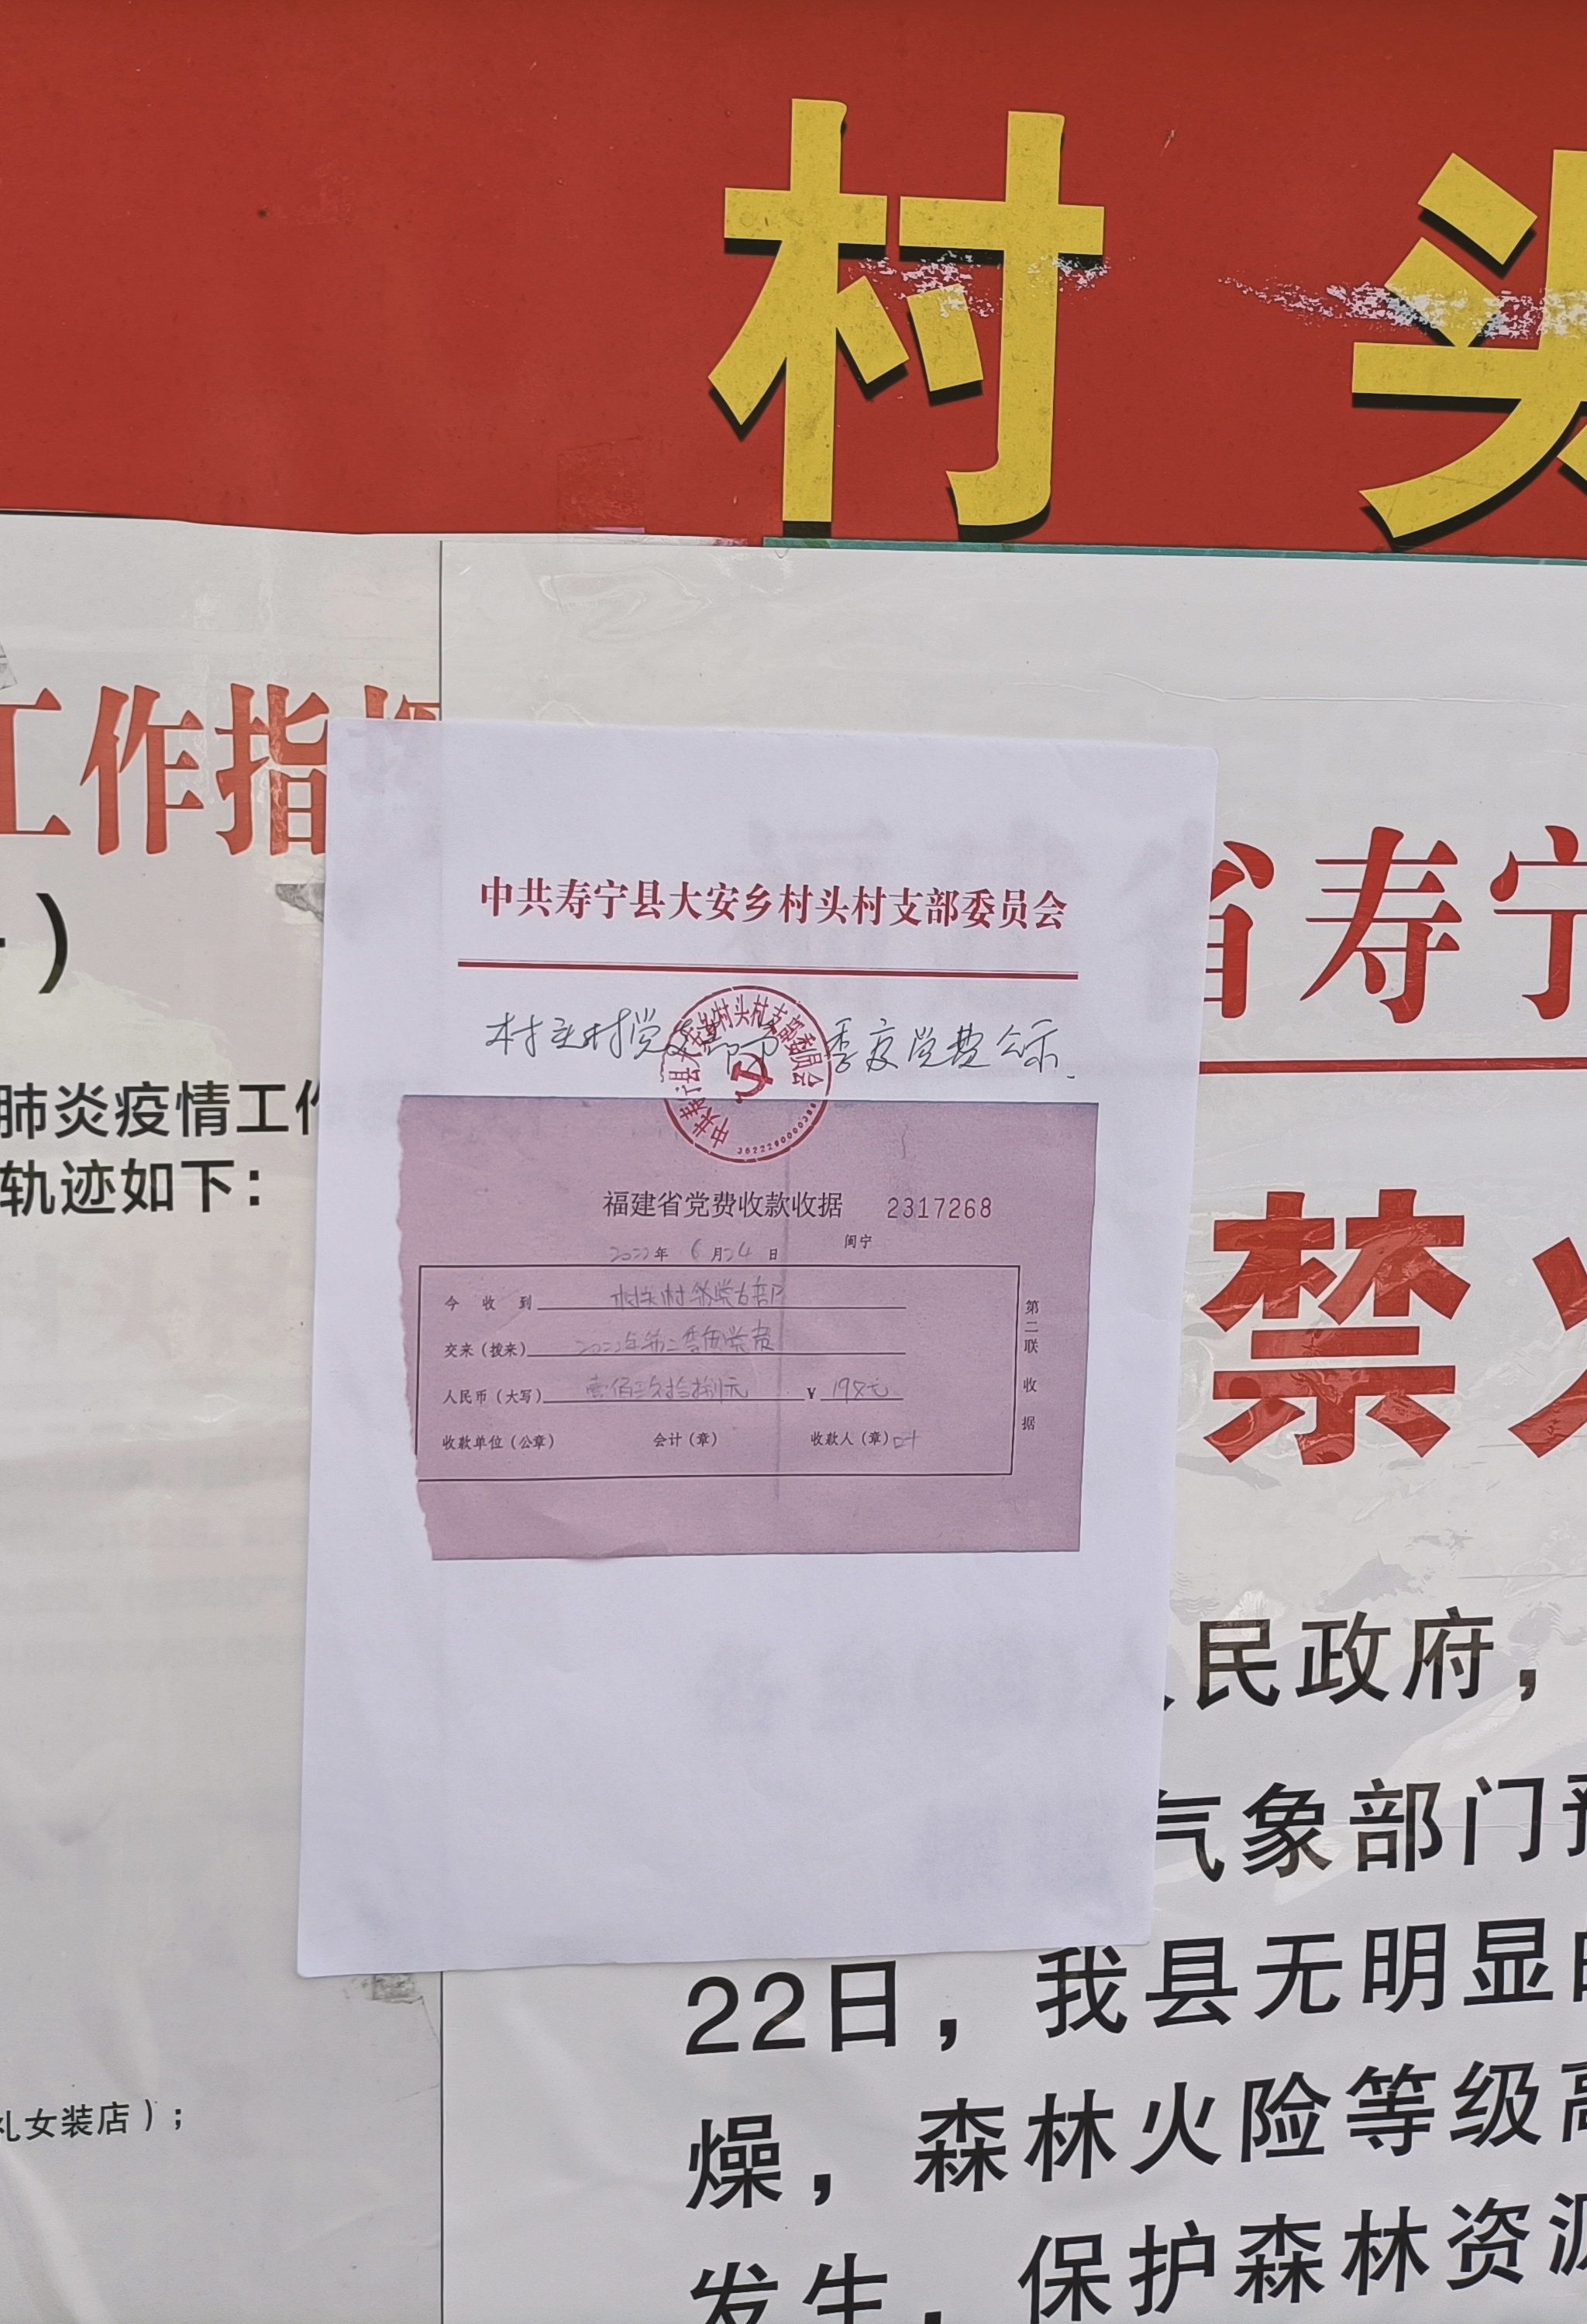 村头
工作指挥
）
肺炎疫情工作
轨迹如下：
礼女装店）；
中共寿宁县大安乡村头村支部委员会
村头村党支部 季度党费公示
中共寿宁县大安乡村头村支部委员会
福建省党费收款收据 2317268
2022年 6月24日 闽宁
今收到 村头村 党支部
交来（拨来） 2022年第二季度党费
人民币（大写） 壹佰玖拾捌元 ¥ 198元
收款单位（公章） 会计（章） 收款人（章）叶
第二联 收据
省寿宁
禁火
民政府，
气象部门预
22日，我县无明显的
燥，森林火险等级高
发生，保护森林资源